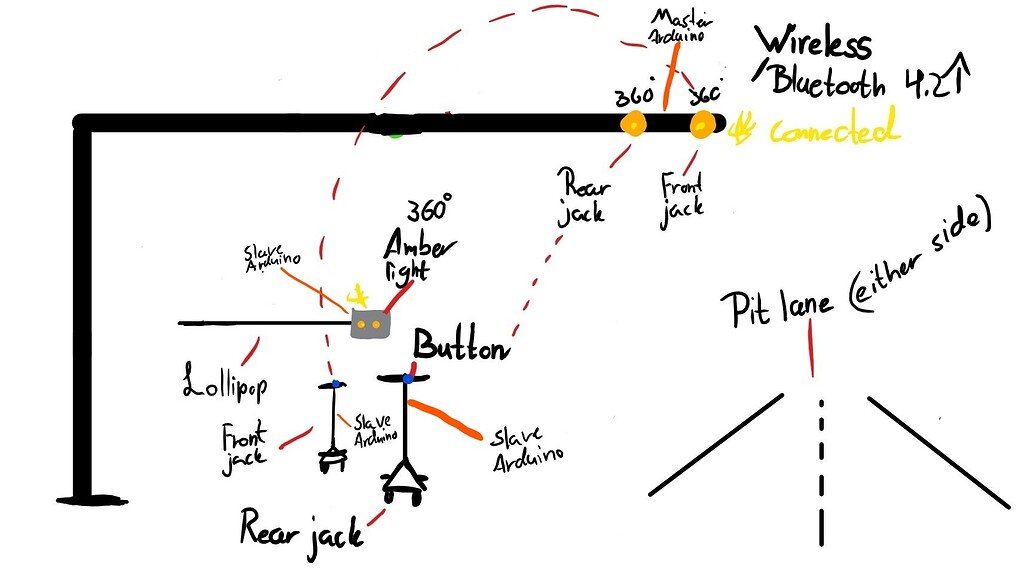 Master
Arduino
Wireless
/Bluetooth 4.2↑
connected
360°
360°
Rear
jack
Front
jack
360°
Amber
light
Slave
Arduino
Lollipop
Button
Front
jack
Slave
Arduino
Slave
Arduino
Rear jack
Pit lane (either side)